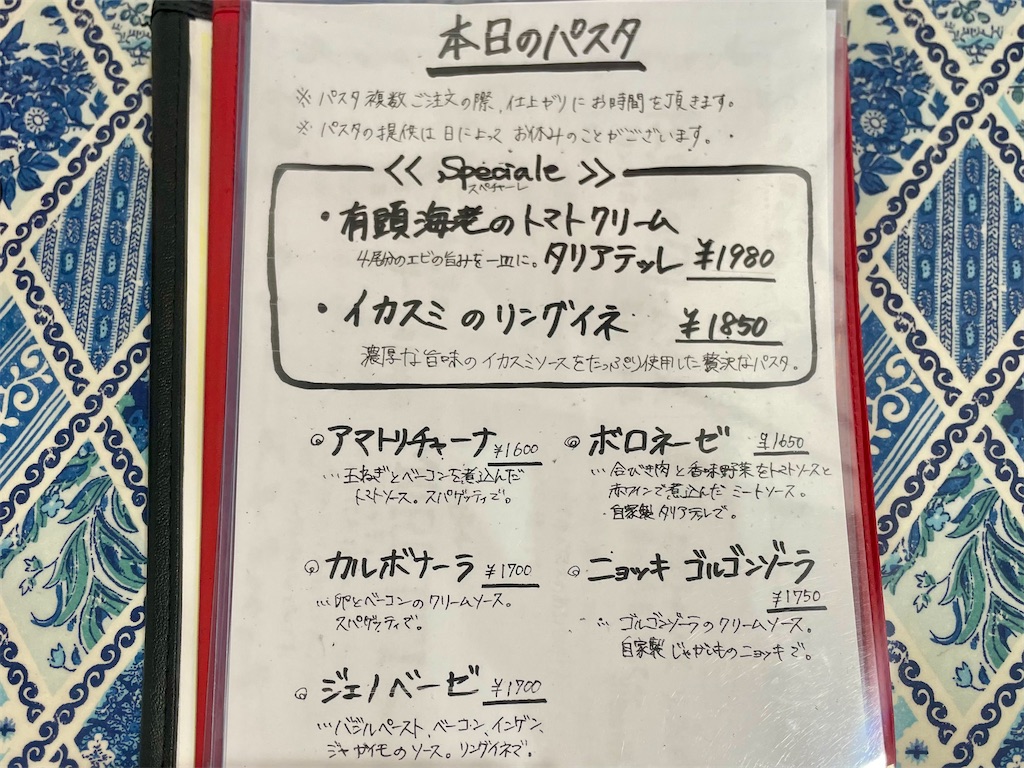 本日のパスタ
※ パスタ複数ご注文の際、仕上がりにお時間を頂きます。
※ パスタの提供は日によって お休みのことがございます。
≪ Speciale ≫
スペチャーレ
・有頭海老のトマトクリーム
4尾分のエビの旨みを一皿に。 タリアテッレ ¥1980
・イカスミのリングイネ ¥1850
濃厚な旨味のイカスミソースをたっぷり使用した贅沢なパスタ。
◎ アマトリチャーナ ¥1600
… 玉ねぎとベーコンを煮込んだ
トマトソース。スパゲッティで。
◎ ボロネーゼ ¥1650
… 合びき肉と香味野菜をトマトソースと
赤ワインで煮込んだ ミートソース。
自家製 タリアテッレで。
◎ カルボナーラ ¥1700
… 卵とベーコンのクリームソース。
スパゲッティで。
◎ ニョッキ ゴルゴンゾーラ
¥1750
… ゴルゴンゾーラのクリームソース。
自家製 じゃがいものニョッキで。
◎ ジェノベーゼ ¥1700
… バジルペースト、ベーコン、インゲン、
ジャガイモのソース。リングイネで。